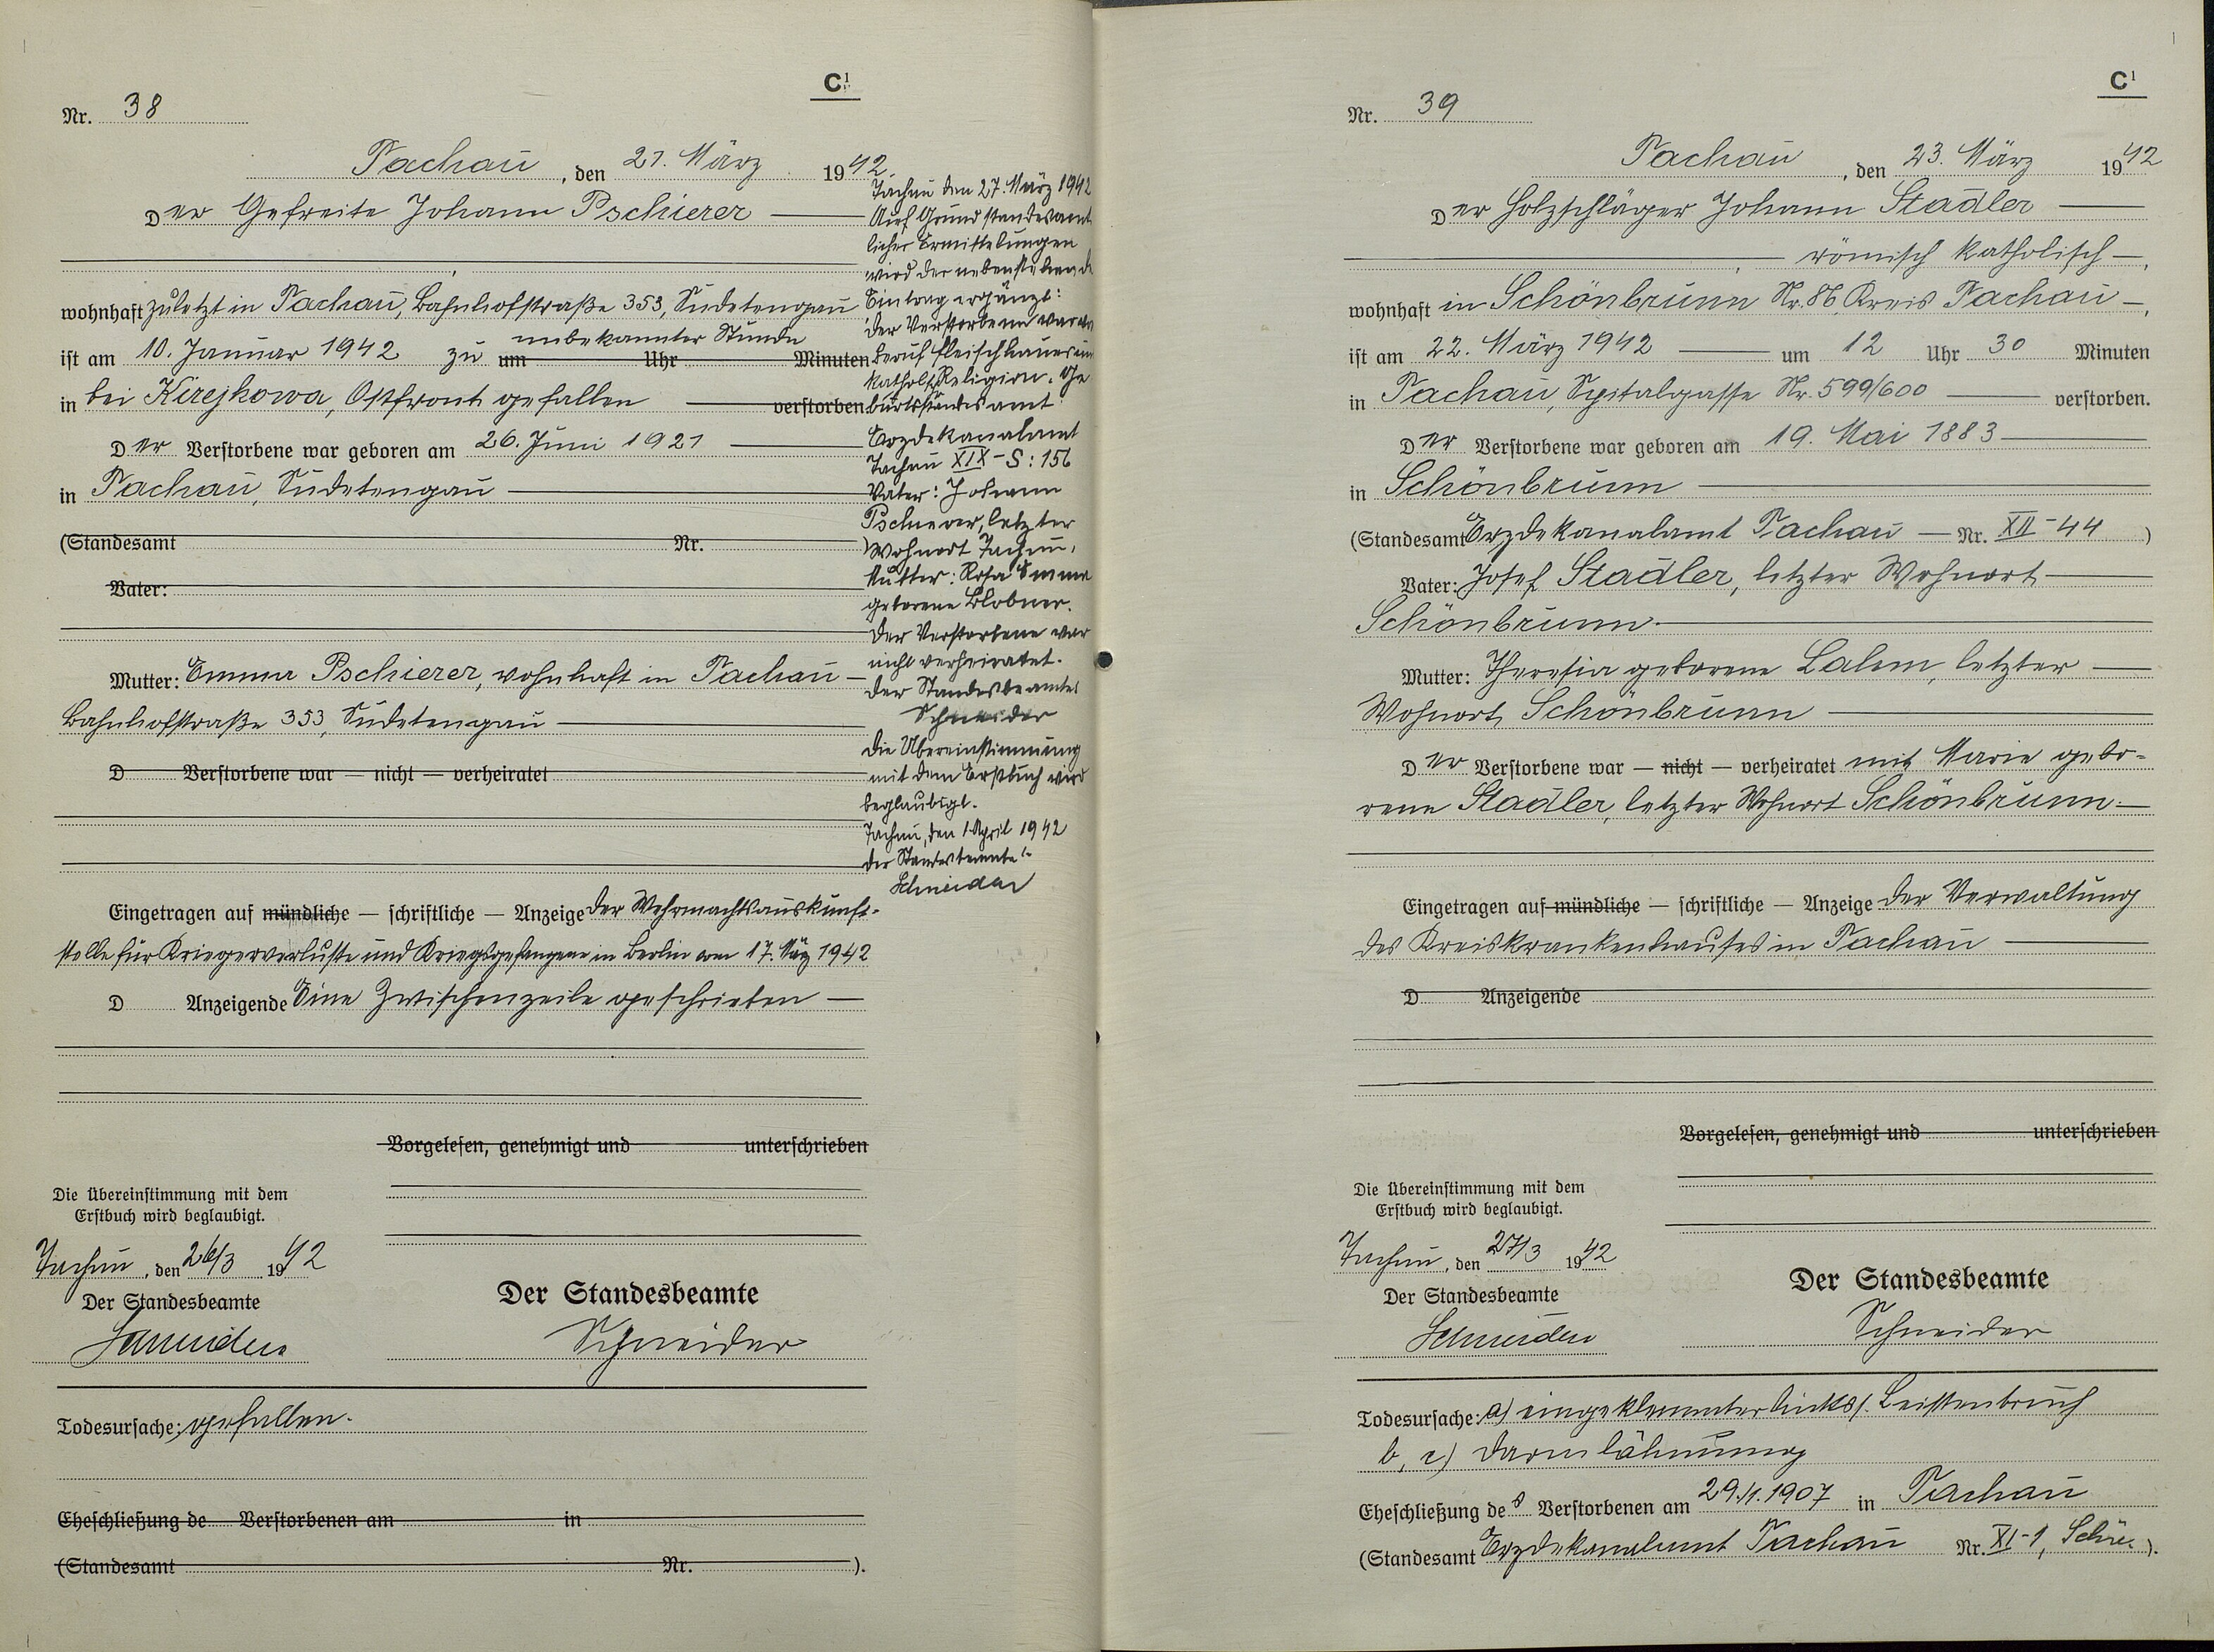 C¹
Nr. 38
Tachau, den 21. März 1942
Der Gefreite Johann Pschierer
wohnhaft zuletzt in Tachau, Bahnhofstraße 353, Sudetengau
unbekannter Stunde
ist am 10. Januar 1942 zu um Uhr Minuten
in bei Kirejkowa, Ostfront gefallen verstorben
Der Verstorbene war geboren am 26. Juni 1921
in Tachau, Sudetengau
(Standesamt Nr. )
Vater:
Mutter: Emma Pschierer, wohnhaft in Tachau
Bahnhofstraße 353, Sudetengau
D Verstorbene war — nicht — verheiratet
Eingetragen auf mündliche — schriftliche — Anzeige der Wehrmachtsauskunft-
stelle für Kriegerverluste und Kriegsgefangene in Berlin vom 17. März 1942
D Anzeigende Eine Zwischenzeile geschrieben —
Vorgelesen, genehmigt und unterschrieben
Die Übereinstimmung mit dem
Erstbuch wird beglaubigt.
Tachau, den 26/3 1942
Der Standesbeamte
Schneider
Der Standesbeamte
Schneider
Todesursache: gefallen.
Eheschließung de Verstorbenen am in
(Standesamt Nr. ).
Tachau den 27. März 1942
Auf Grund standesamt
licher Ermittelungen
wird der nebenstehende
Eintrag ergänzt:
Der Verstorbene war von
Beruf Fleischhauer
kathol. Religion. Ge
burtsstandesamt
Erzdekanalamt
Tachau XIX - S: 156
Vater: Johann
Pschierer, letzter
Wohnort Tachau,
Mutter: Rosa Emma
geborene Blobner.
Der Verstorbene war
nicht verheiratet.
Der Standesbeamte
Schneider
Die Übereinstimmung
mit dem Erstbuch wird
beglaubigt.
Tachau, den 1. April 1942
Der Standesbeamte
Schneider
C¹
Nr. 39
Tachau, den 23. März 1942
Der Holzschläger Johann Stadler
, römisch katholisch —,
wohnhaft in Schönbrunn Nr. 86, Kreis Tachau —,
ist am 22. März 1942 um 12 Uhr 30 Minuten
in Tachau, Spitalgasse Nr. 599/600 verstorben.
Der Verstorbene war geboren am 19. Mai 1883
in Schönbrunn
(Standesamt Erzdekanalamt Tachau — Nr. XII - 44 )
Vater: Josef Stadler, letzter Wohnort
Schönbrunn.
Mutter: Theresia geborene Lalm, letzter
Wohnort Schönbrunn
Der Verstorbene war — nicht — verheiratet mit Marie gebo-
rene Stadler, letzter Wohnort Schönbrunn.
Eingetragen auf mündliche — schriftliche — Anzeige der Verwaltung
des Kreiskrankenhauses in Tachau
D Anzeigende
Vorgelesen, genehmigt und unterschrieben
Die Übereinstimmung mit dem
Erstbuch wird beglaubigt.
Tachau, den 27/3 1942
Der Standesbeamte
Schneider
Der Standesbeamte
Schneider
Todesursache: a) eingeklemmter links. Leistenbruch
b, c) Darmlähmung
Eheschließung des Verstorbenen am 29./1. 1907 in Tachau
(Standesamt Erzdekanalamt Tachau Nr. XI - 1, ).